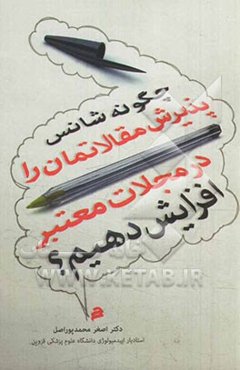 چگونه شانس
پذیرش مقالاتمان را
در مجلات معتبر
افزایش دهیم؟
دکتر اصغر محمدپوراصل
استادیار اپیدمیولوژی دانشگاه علوم پزشکی قزوین
WWW.KETAB.IR